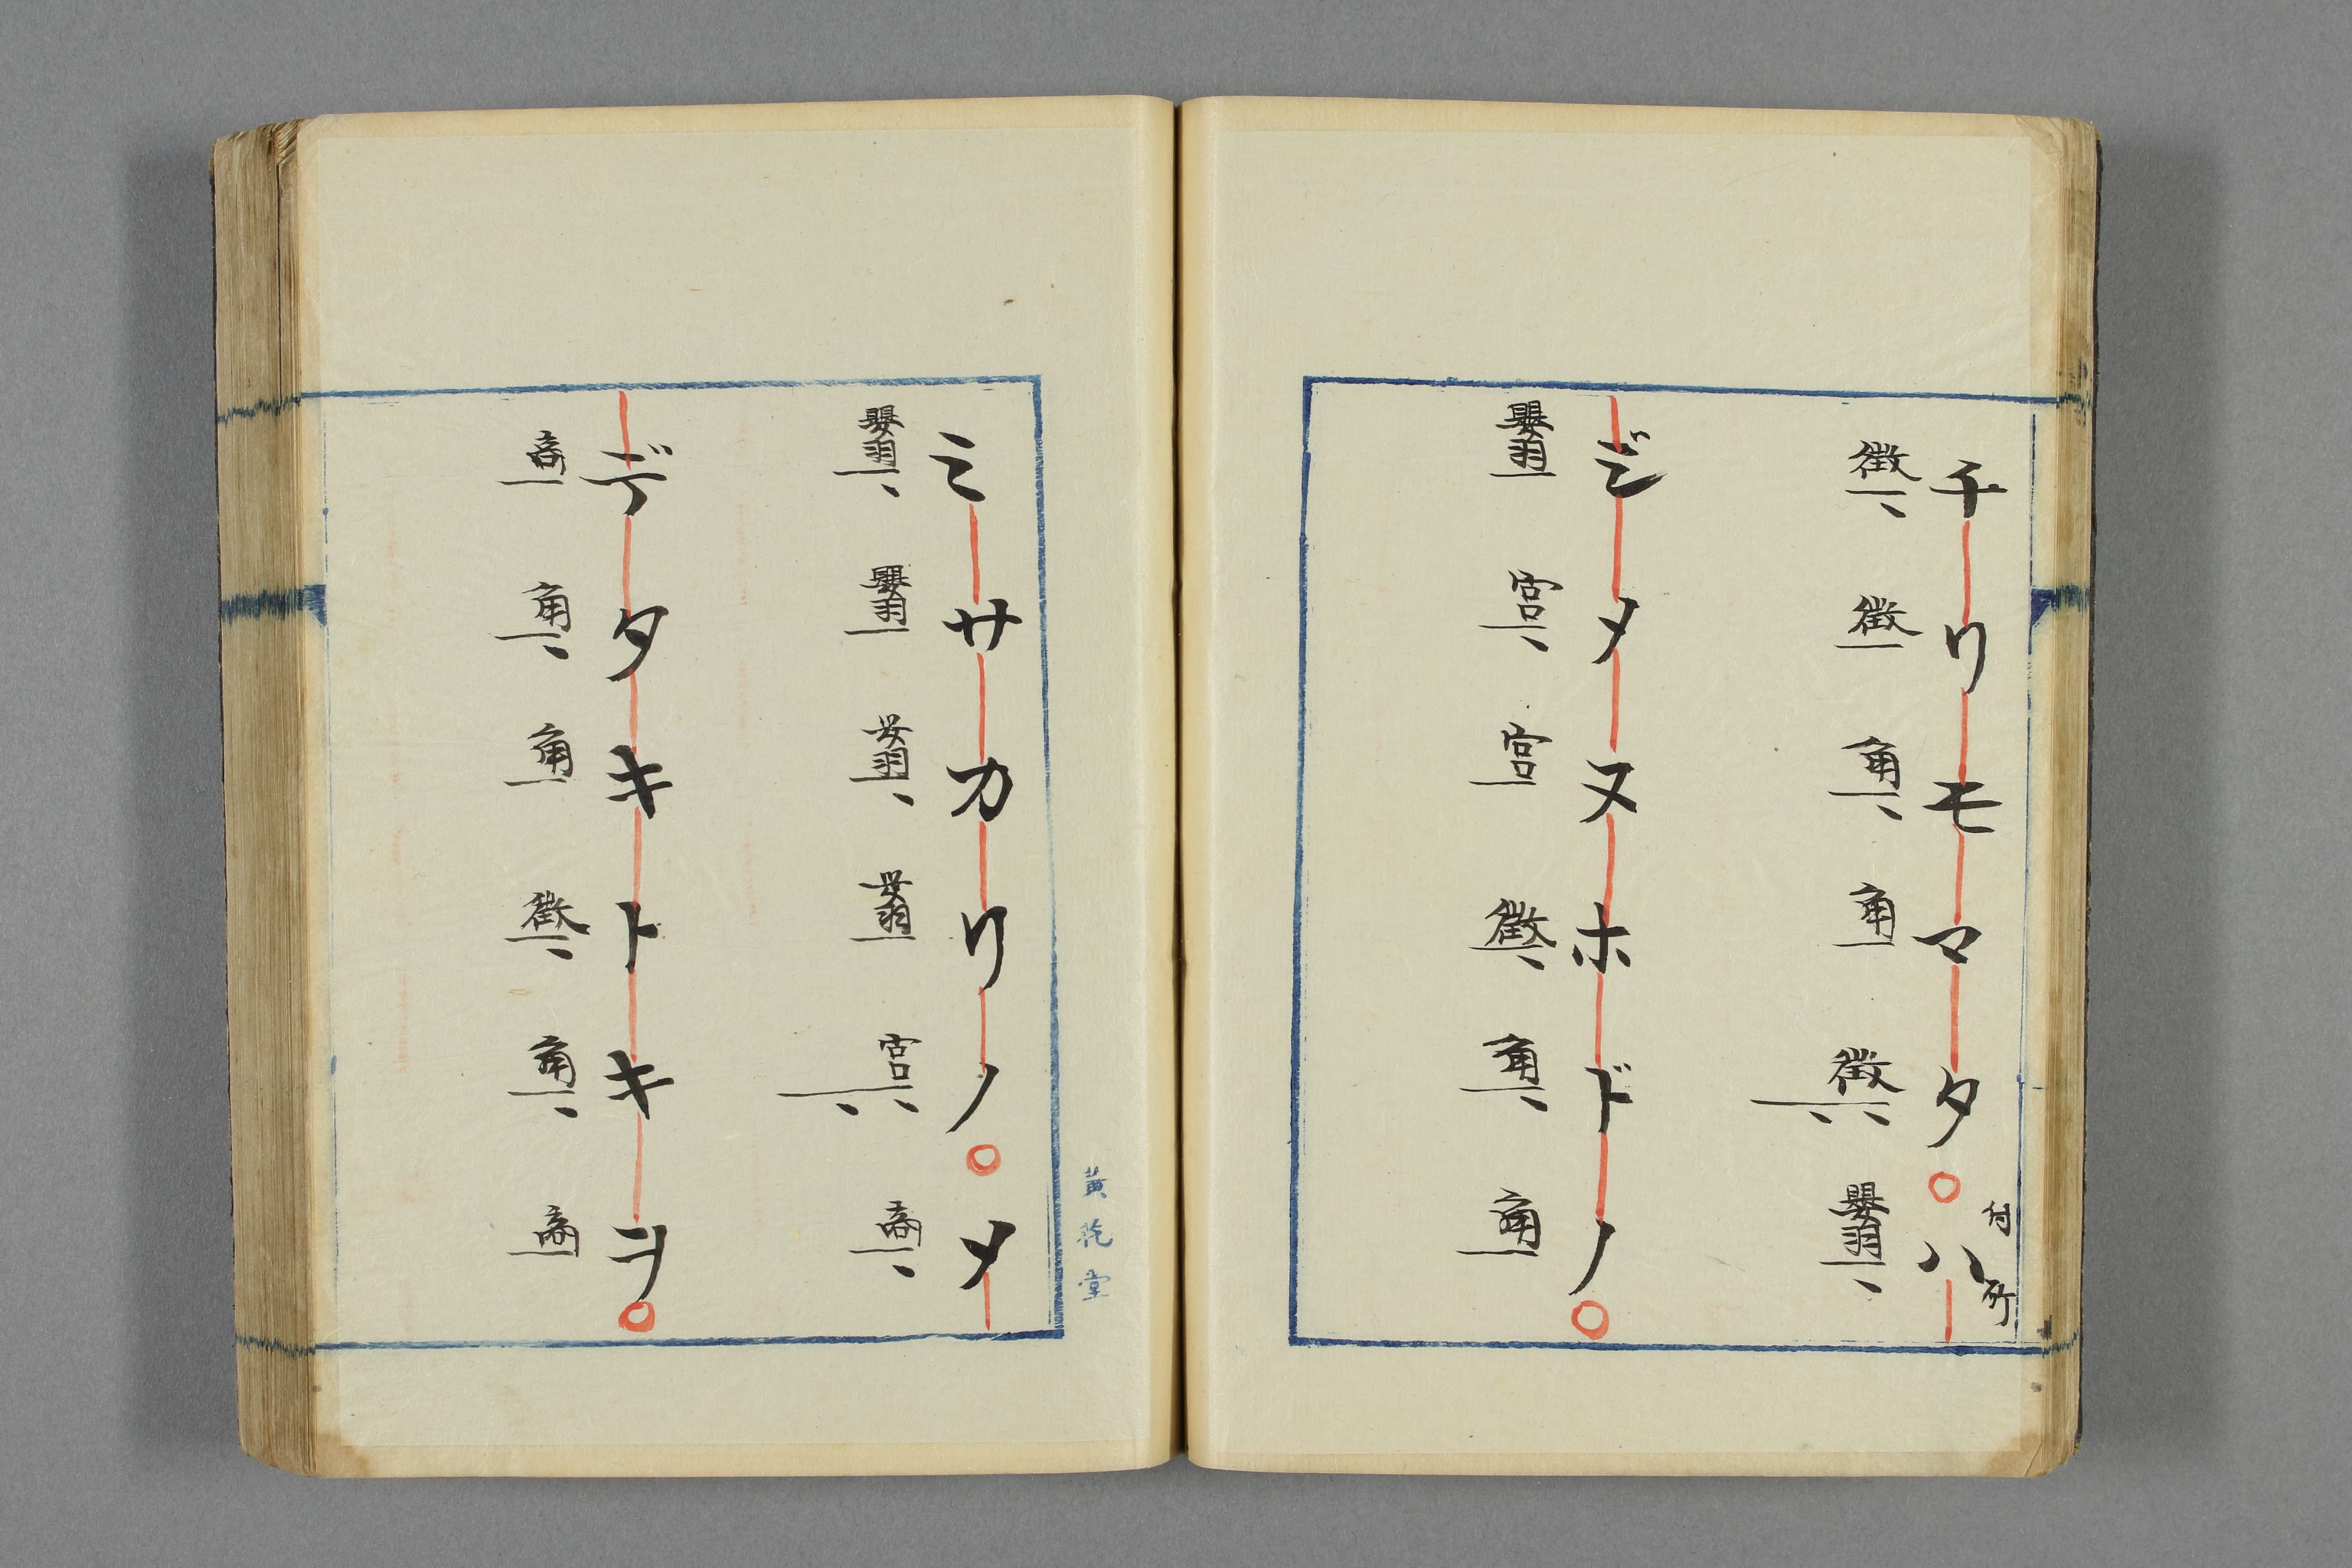 チリモマタ○ハ
付所
徴徴角角徴嬰羽
ジメヌホドノ○
嬰羽宮宮徴角角
ミサカリノ○メ
嬰羽嬰羽嬰羽嬰羽宮商
デタキトキヲ○
商角角徴角商
堂